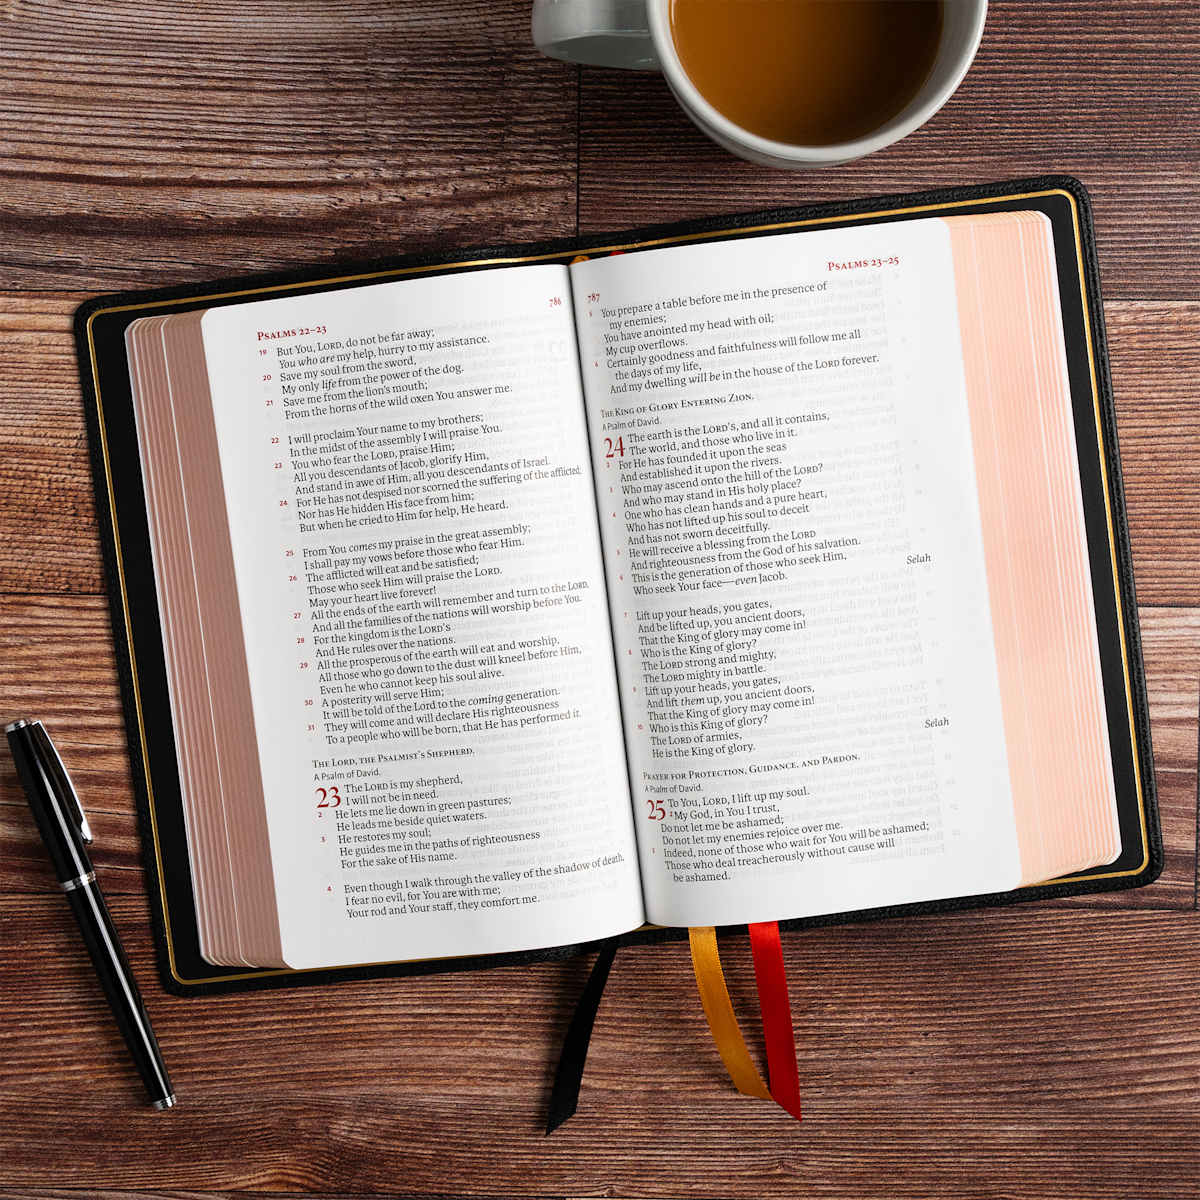 786
PSALMS 22–23
19 But You, LORD, do not be far away;
You who are my help, hurry to my assistance.
20 Save my soul from the sword,
My only life from the power of the dog.
21 Save me from the lion's mouth;
From the horns of the wild oxen You answer me.
22 I will proclaim Your name to my brothers;
In the midst of the assembly I will praise You.
23 You who fear the LORD, praise Him;
All you descendants of Jacob, glorify Him,
And stand in awe of Him, all you descendants of Israel.
24 For He has not despised nor scorned the suffering of the afflicted;
Nor has He hidden His face from him;
But when he cried to Him for help, He heard.
25 From You comes my praise in the great assembly;
I shall pay my vows before those who fear Him.
26 The afflicted will eat and be satisfied;
Those who seek Him will praise the LORD.
May your heart live forever!
27 All the ends of the earth will remember and turn to the LORD,
And all the families of the nations will worship before You.
28 For the kingdom is the LORD'S
And He rules over the nations.
29 All the prosperous of the earth will eat and worship,
All those who go down to the dust will kneel before Him,
Even he who cannot keep his soul alive.
30 A posterity will serve Him;
It will be told of the Lord to the coming generation.
31 They will come and will declare His righteousness
To a people who will be born, that He has performed it.
THE LORD, THE PSALMIST'S SHEPHERD.
A Psalm of David.
23 The LORD is my shepherd,
I will not be in need.
2 He lets me lie down in green pastures;
He leads me beside quiet waters.
3 He restores my soul;
He guides me in the paths of righteousness
For the sake of His name.
4 Even though I walk through the valley of the shadow of death,
I fear no evil, for You are with me;
Your rod and Your staff, they comfort me.
787
PSALMS 23–25
5 You prepare a table before me in the presence of
my enemies;
You have anointed my head with oil;
My cup overflows.
6 Certainly goodness and faithfulness will follow me all
the days of my life,
And my dwelling will be in the house of the LORD forever.
THE KING OF GLORY ENTERING ZION.
A Psalm of David.
24 The earth is the LORD'S, and all it contains,
The world, and those who live in it.
2 For He has founded it upon the seas
And established it upon the rivers.
3 Who may ascend onto the hill of the LORD?
And who may stand in His holy place?
4 One who has clean hands and a pure heart,
Who has not lifted up his soul to deceit
And has not sworn deceitfully.
5 He will receive a blessing from the LORD
And righteousness from the God of his salvation.
6 This is the generation of those who seek Him,
Who seek Your face—even Jacob. Selah
7 Lift up your heads, you gates,
And be lifted up, you ancient doors,
That the King of glory may come in!
8 Who is the King of glory?
The LORD strong and mighty,
The LORD mighty in battle.
9 Lift up your heads, you gates,
And lift them up, you ancient doors,
That the King of glory may come in!
10 Who is this King of glory?
The LORD of armies,
He is the King of glory. Selah
PRAYER FOR PROTECTION, GUIDANCE, AND PARDON.
A Psalm of David.
25 To You, LORD, I lift up my soul.
2 My God, in You I trust,
Do not let me be ashamed;
Do not let my enemies rejoice over me.
3 Indeed, none of those who wait for You will be ashamed;
Those who deal treacherously without cause will
be ashamed.